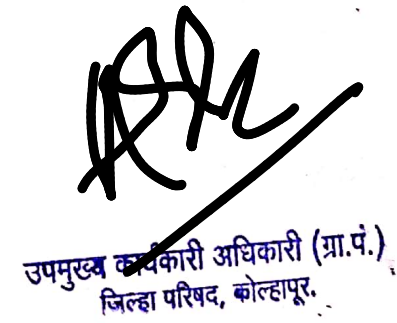 उपमुख्य कार्यकारी अधिकारी (ग्रा.पं.)
जिल्हा परिषद, कोल्हापूर.